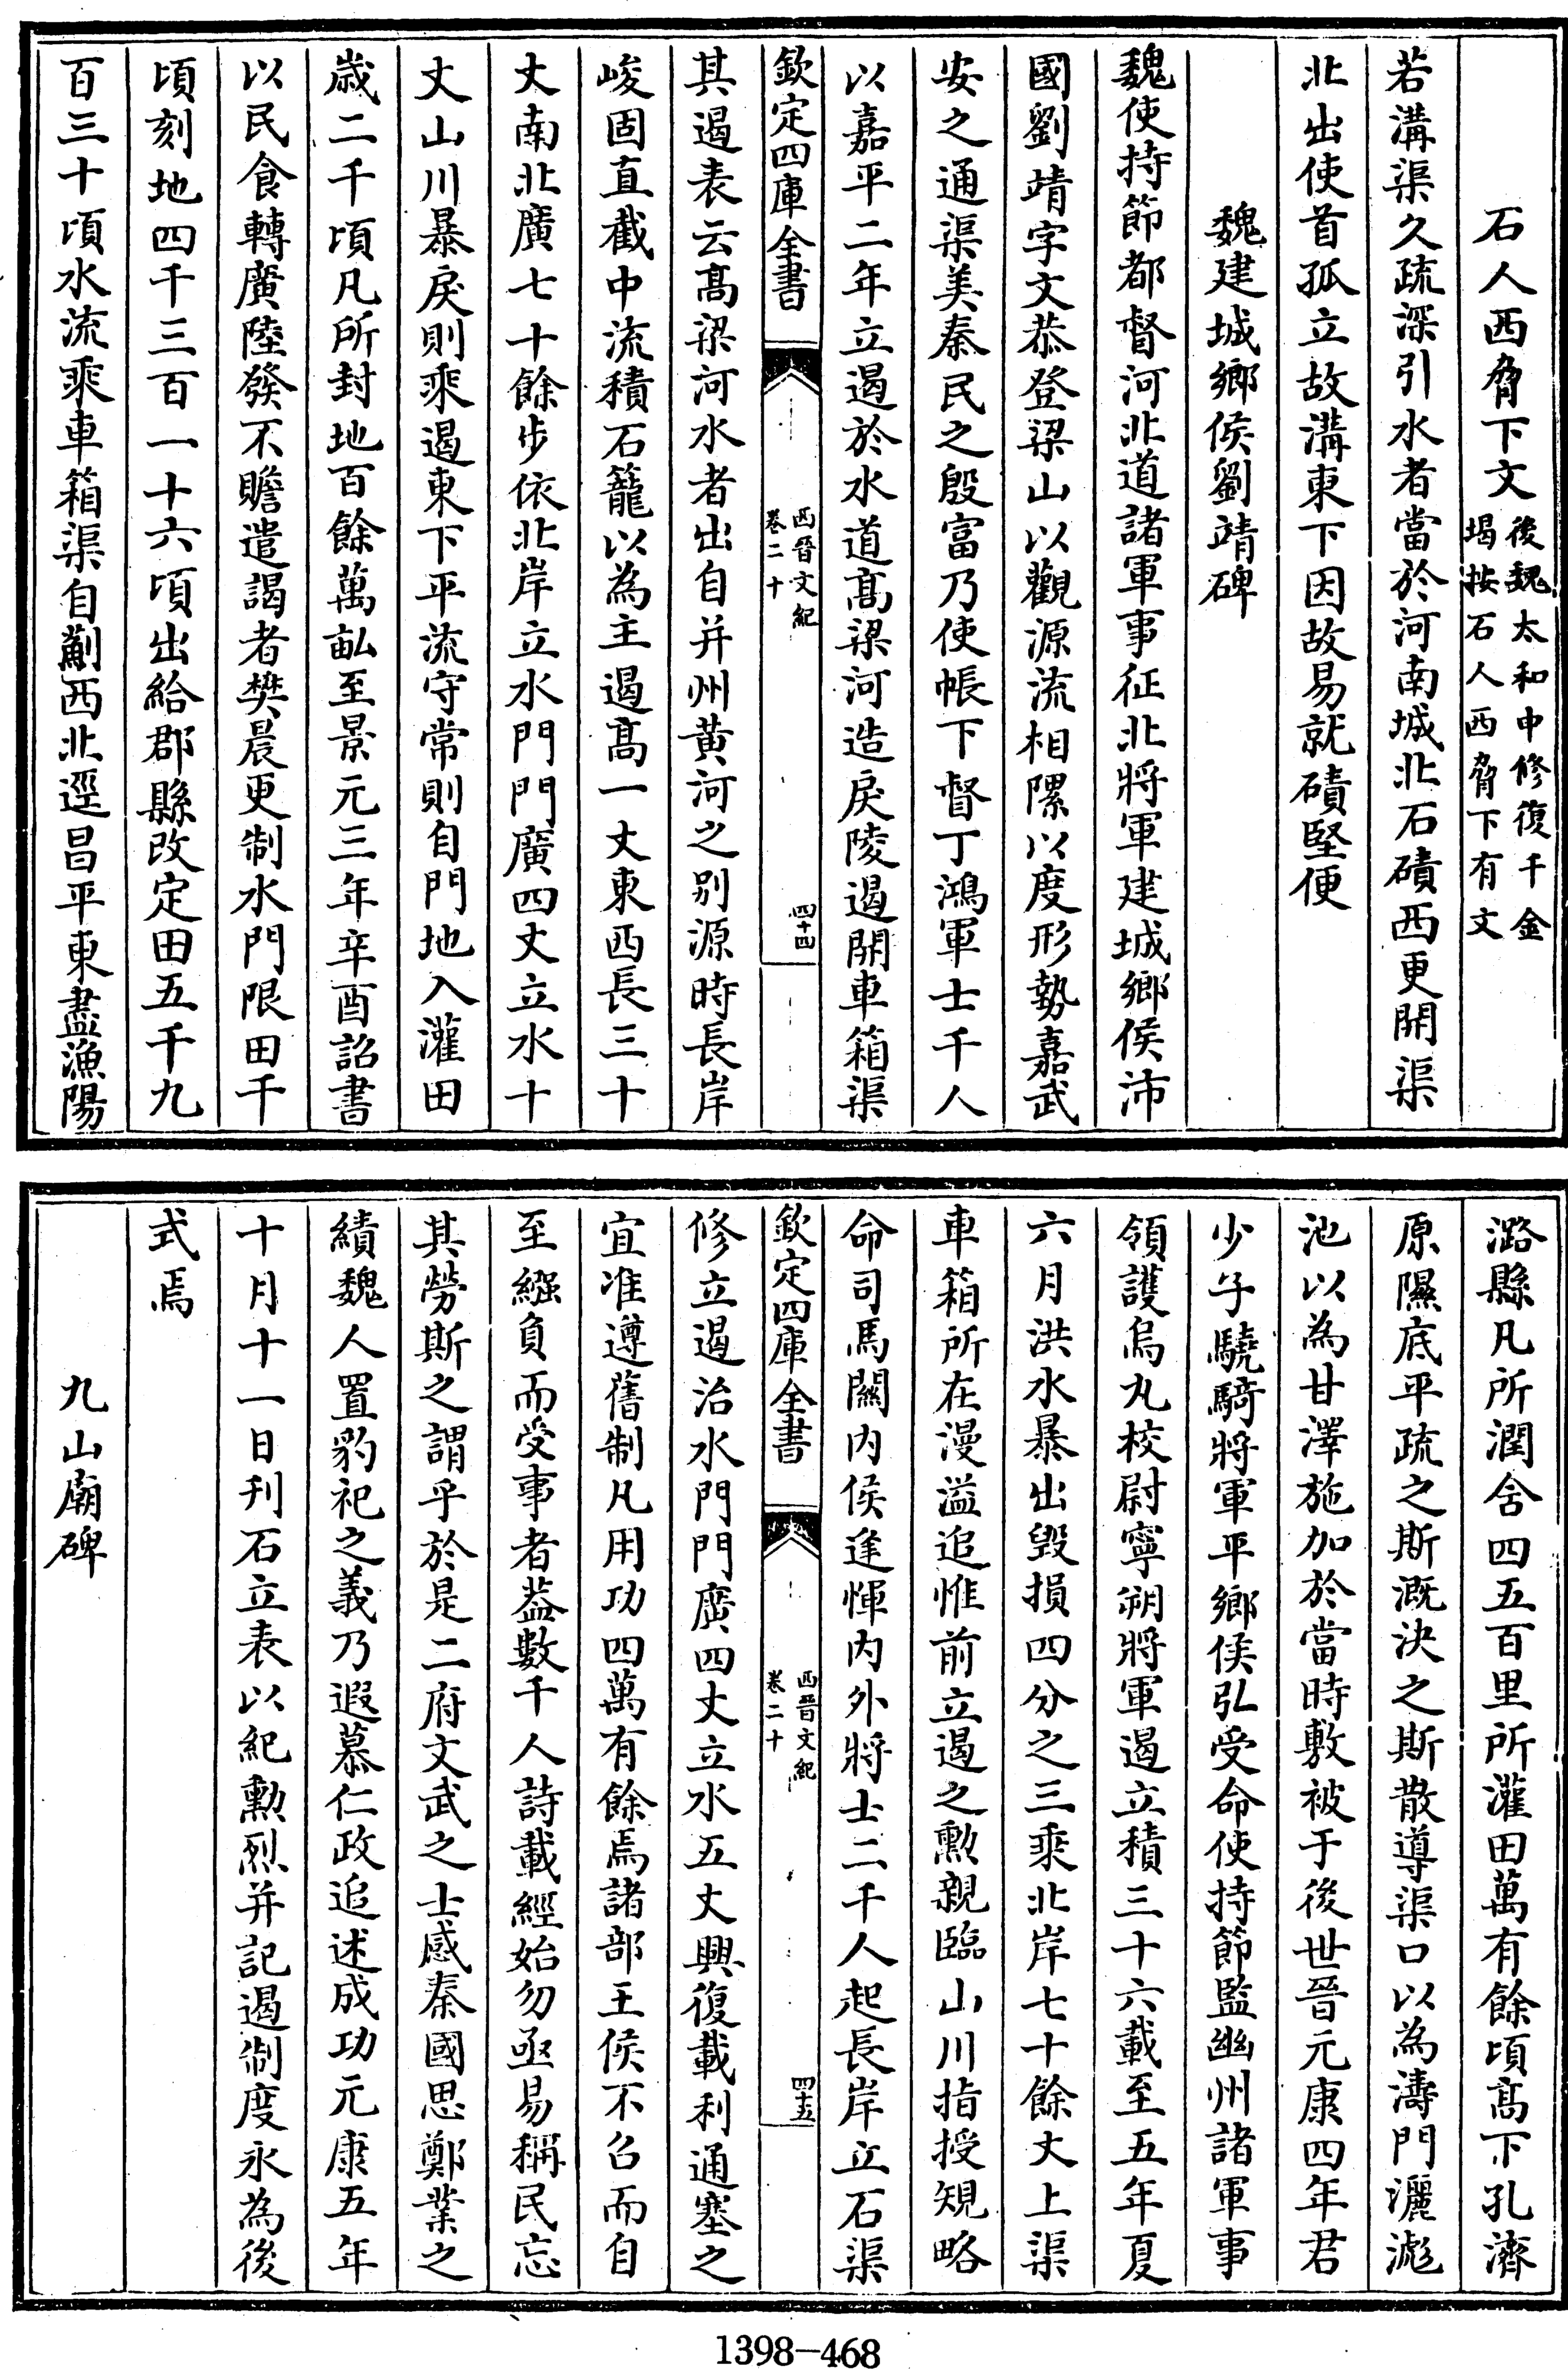 石人西脅下文後魏太和中修復千金
堨按石人西脅下有文
若溝渠久疏深引水者當於河南城北石磧西更開渠
北出使首孤立故溝東下因故易就磧堅便
魏建城鄉侯劉靖碑
魏使持節都督河北道諸軍事征北將軍建城鄉侯沛
國劉靖字文恭登梁山以觀源流相㶟以度形勢嘉武
安之通渠美秦民之殷富乃使帳下督丁鴻軍士千人
以嘉平二年立遏於水道髙梁河造戾陵遏開車箱渠
欽定四庫全書
西晉文紀
卷二十
四十四
其遏表云髙梁河水者出自并州黄河之别源時長岸
峻固直截中流積石籠以為主遏髙一丈東西長三十
丈南北廣七十餘步依北岸立水門門廣四丈立水十
丈山川暴戾則乘遏東下平流守常則自門地入灌田
歳二千頃凡所封地百餘萬畝至景元三年辛酉詔書
以民食轉廣陸發不贍遣謁者樊晨更制水門限田千
頃刻地四千三百一十六頃出給郡縣改定田五千九
百三十頃水流乘車箱渠自薊西北逕昌平東盡漁陽
潞縣凡所潤含四五百里所灌田萬有餘頃髙下孔濟
原隰底平疏之斯溉決之斯散導渠口以為濤門灑滮
池以為甘澤施加於當時敷被于後世晉元康四年君
少子驍騎將軍平鄉侯弘受命使持節監幽州諸軍事
領護烏丸校尉寧朔將軍遏立積三十六載至五年夏
六月洪水暴出毀損四分之三乘北岸七十餘丈上渠
車箱所在漫溢追惟前立遏之勲親臨山川指授規略
命司馬關内侯逄惲内外將士二千人起長岸立石渠
欽定四庫全書
西晉文紀
卷二十
四十五
修立遏治水門門廣四丈立水五丈興復載利通塞之
宜准遵舊制凡用功四萬有餘焉諸部王侯不召而自
至繦負而受事者葢數千人詩載經始勿亟易稱民忘
其勞斯之謂乎於是二府文武之士感秦國思鄭業之
績魏人置豹祀之義乃遐慕仁政追述成功元康五年
十月十一日刊石立表以紀勲烈并記遏制度永為後
式焉
九山廟碑
1398-468